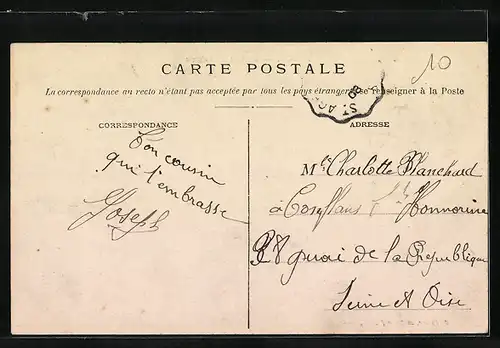 10
CARTE POSTALE
La correspondance au recto n'étant pas acceptée par tous les pays étrangers se renseigner à la Poste
ST AG
CORRESPONDANCE
Ton cousin
qui t'embrasse
Joseph
ADRESSE
Mlle Charlotte Blanchard
à Conflans Ste Honnorine
quai de la République
Seine et Oise